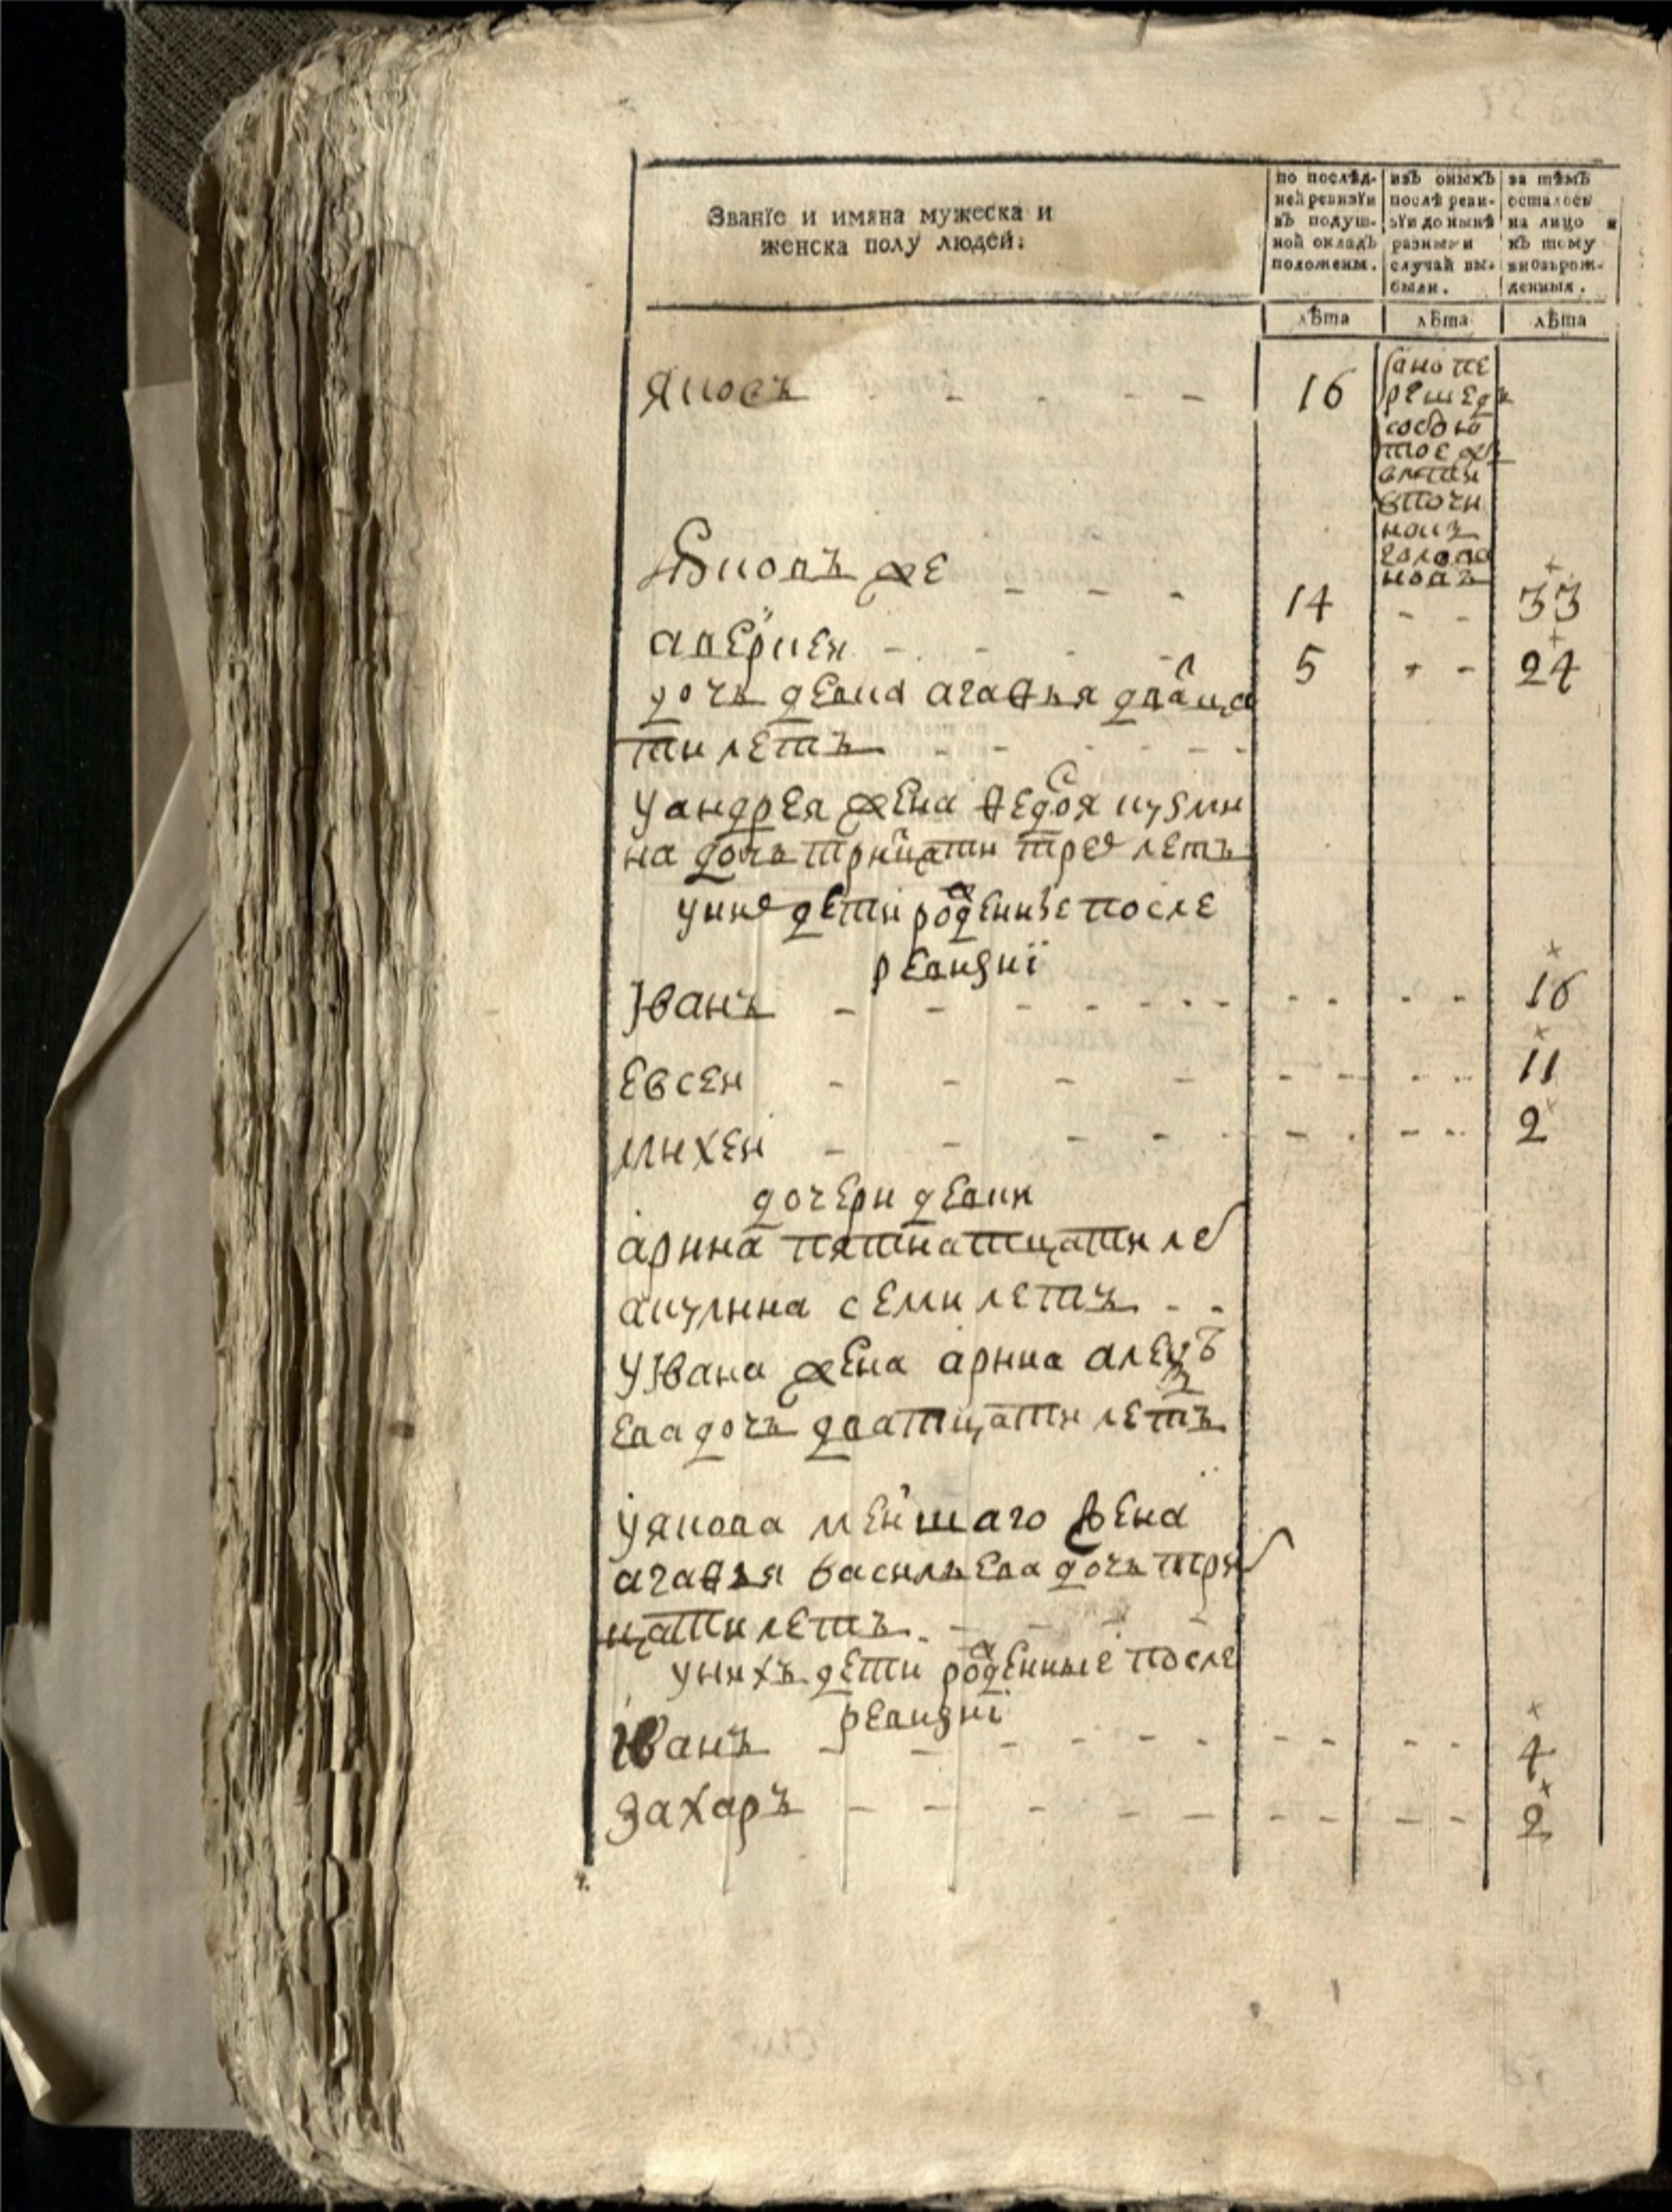 Званїе и имяна мужеска и
женска полу людей:
по послѣд-
ней ревизїи
въ подуш-
ной окладъ
положены.
изъ оныхъ
послѣ реви-
зїи до нынѣ
разными
случай вы-
были.
за тѣмъ
осталось
на лицо и
къ тому
вновьрож-
денныя.
лѣта
лѣта
лѣта
Яковъ - - - - 16
оно пе
решедъ
собою
тое же
Яковъ же - - - 14 - - 33
аверкеи - - - - 5 - - 24
дочь девка агафья дватца
ти летъ - - - - - -
у андрея жена федося кузми
на дочь тритцати трех летъ
у них дети рожденые после
ревизиї
Јванъ - - - - - - - - - - - 16
евсеи - - - - - - - - 11
михеи - - - - - - - - - 2
дочери девки
арина пятнатцати ле
акулина семи летъ - -
у Јвана жена арина алек
ева дочь дватцати летъ
у якова меншаго жена
агафья васильева дочь три
цати летъ - - - -
у нихъ дети рожденные после
ревизиї
Јванъ - - - - - - - - - - 4
захаръ - - - - - - - - - - 2